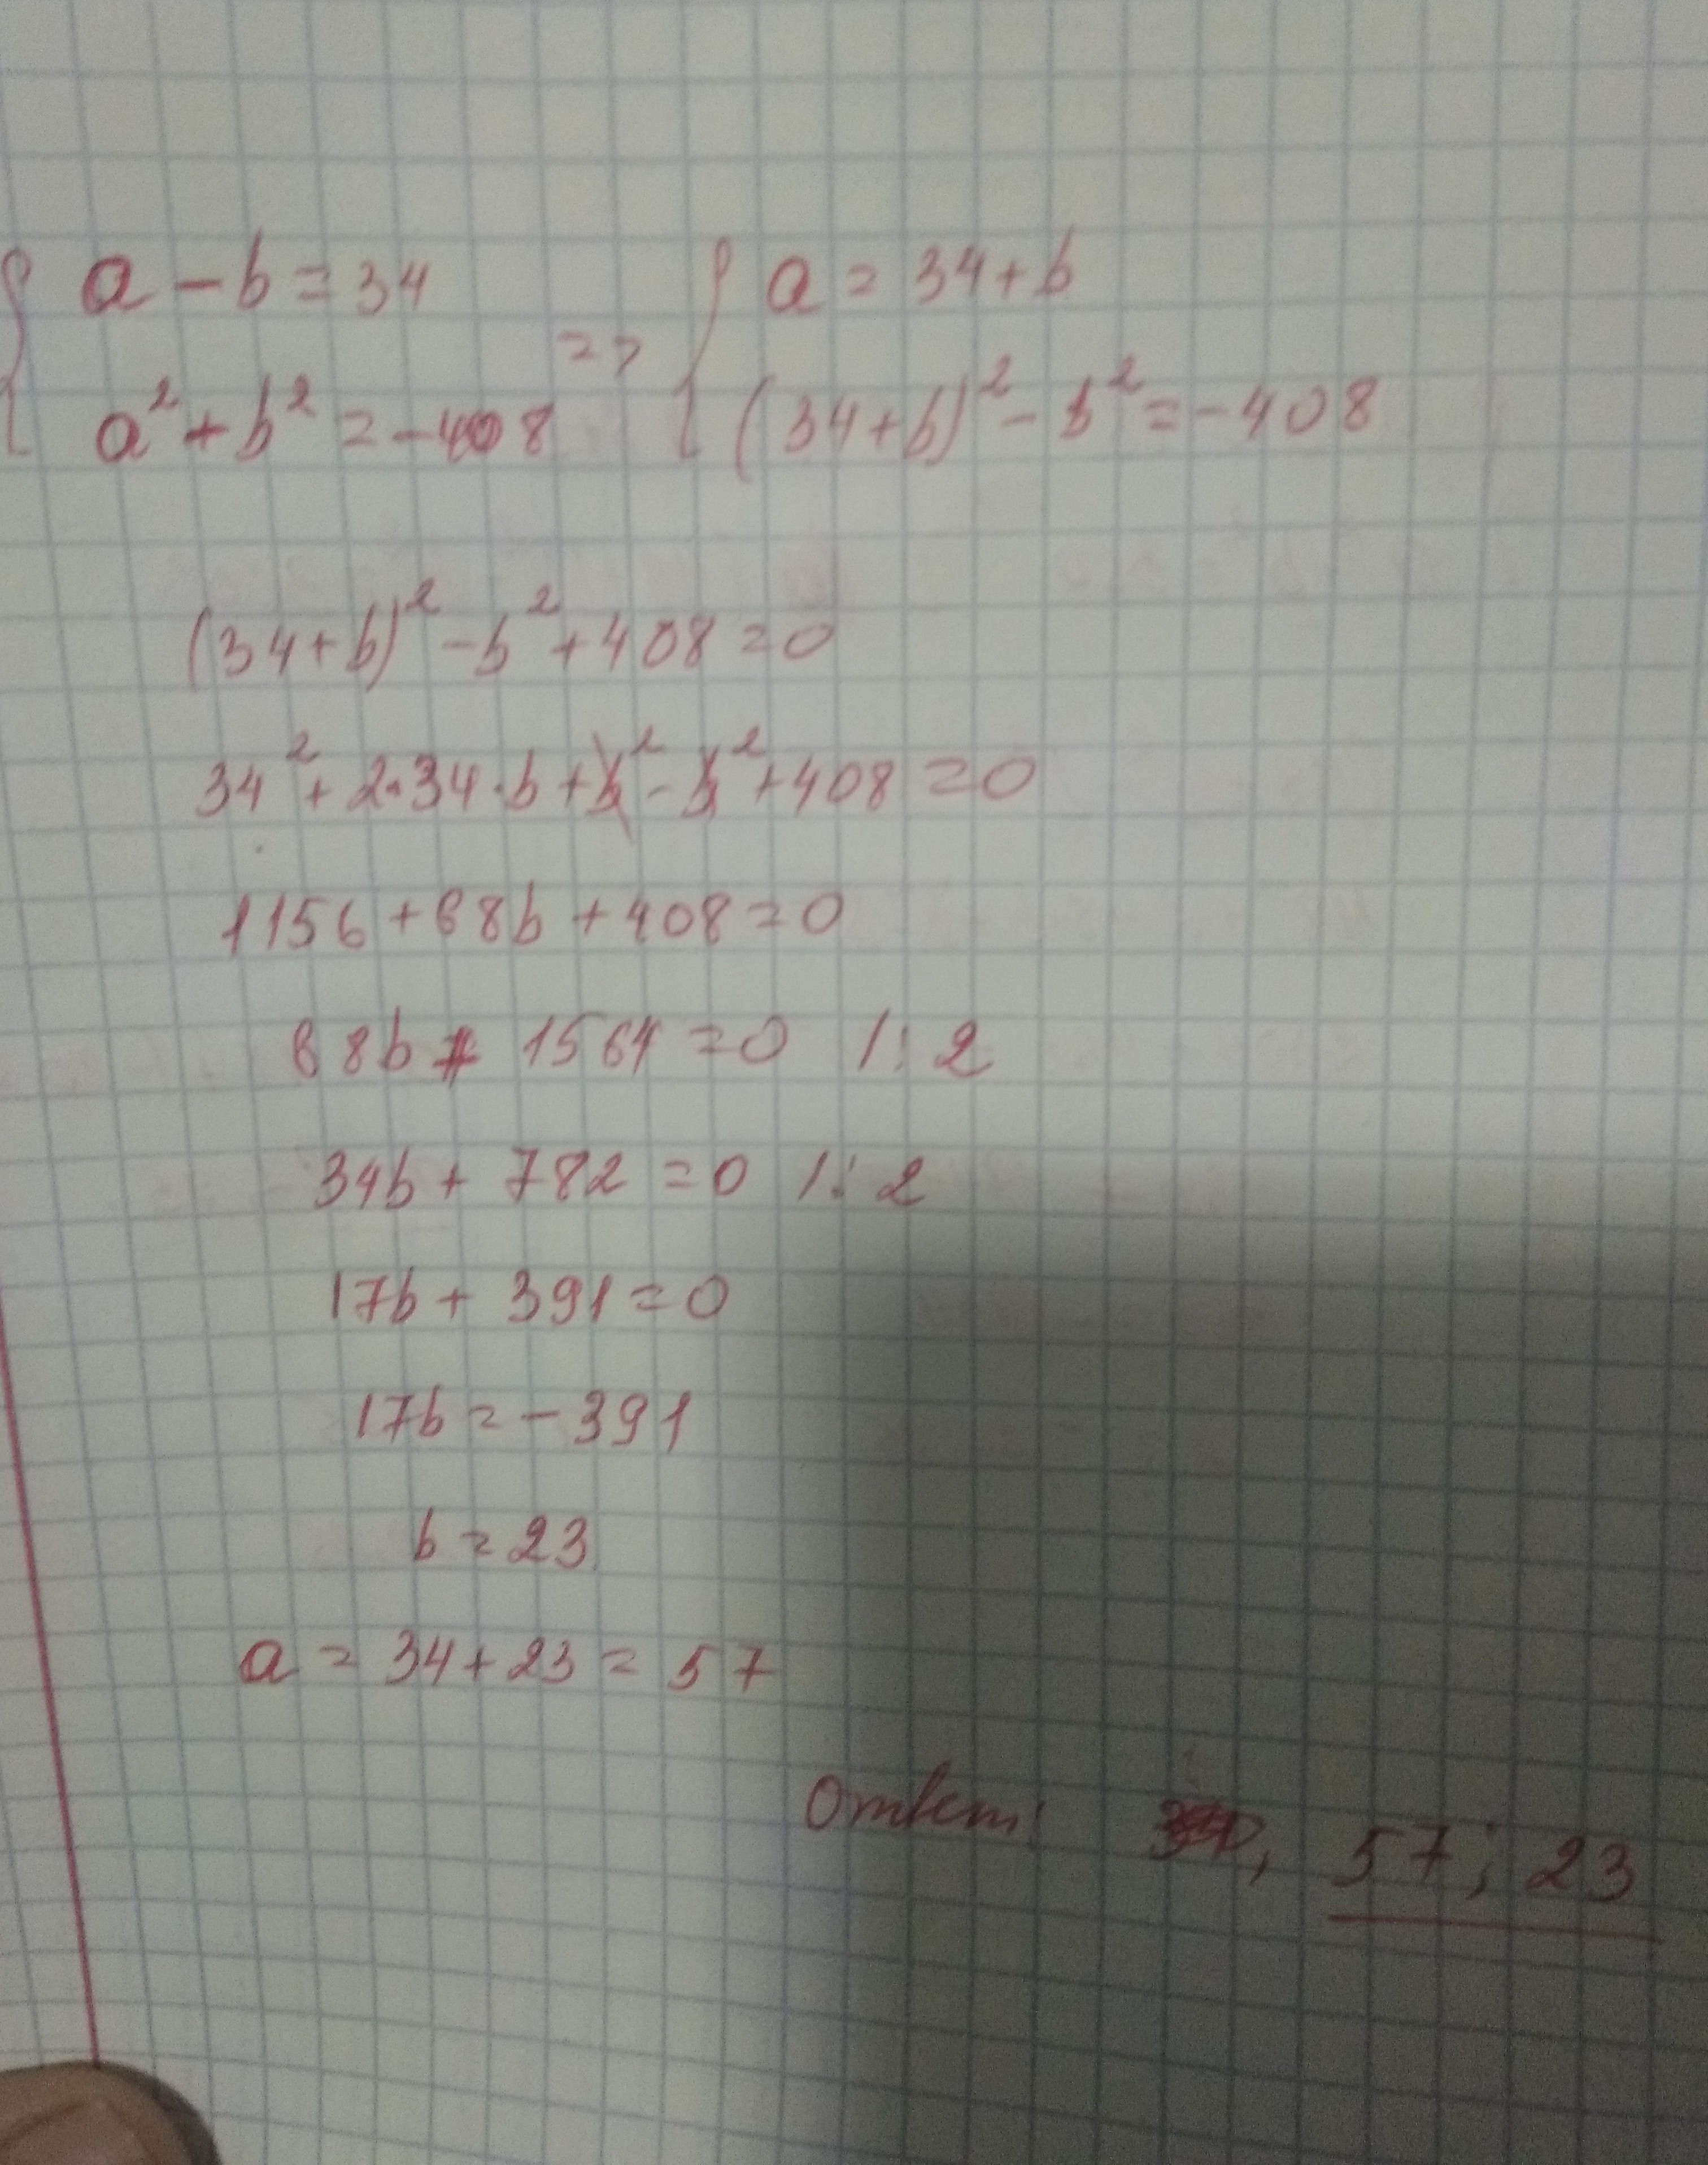 a - b = 34 => a = 34 + b
a² + b² = -408 (34 + b)² - b² = -408
(34 + b)² - b² + 408 = 0
34² + 2·34·b + b² - b² + 408 = 0
1156 + 68b + 408 = 0
68b + 1564 = 0 /: 2
34b + 782 = 0 /: 2
17b + 391 = 0
17b = -391
b = 23
a = 34 + 23 = 57
Ответ: , 57; 23